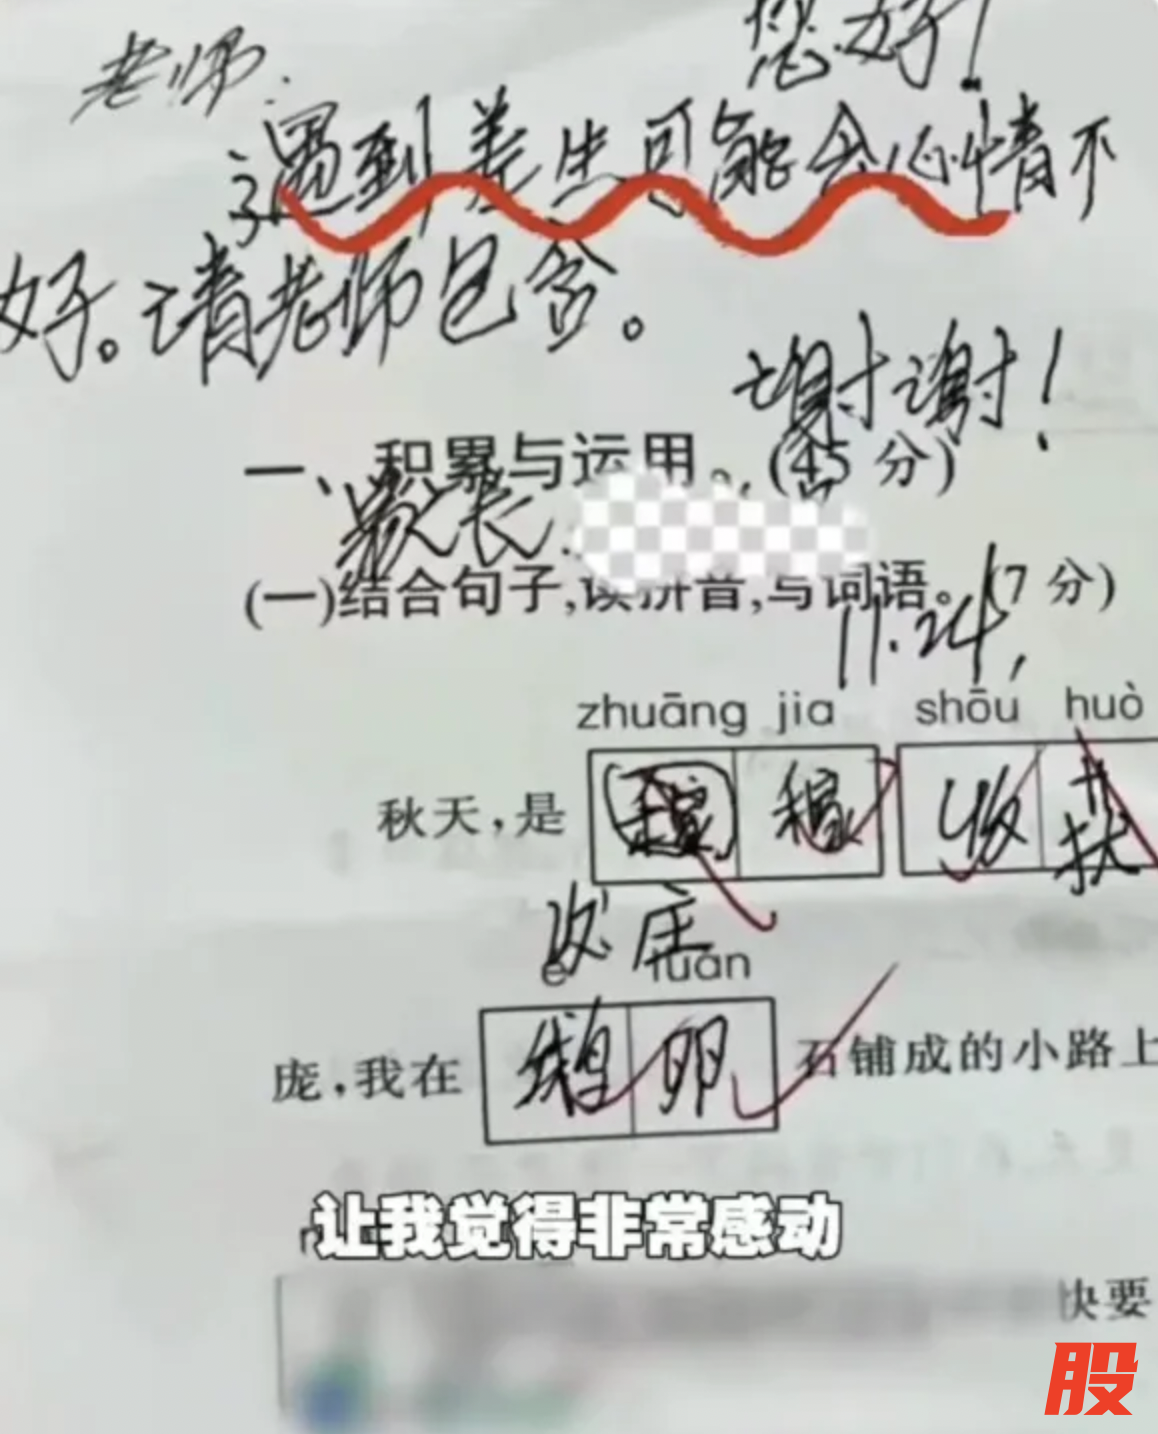 老师:
您好!
遇到差生可能会心情不
好。请老师包含。
谢谢!
一、积累与运用。(45 分)
家长:
(一)结合句子,读拼音,写词语。(7 分)
11.24,
zhuāng jia shōu huò
秋天,是 稼 收
庄
é luǎn
庞,我在 鹅卵 石铺成的小路上
让我觉得非常感动
快要
股